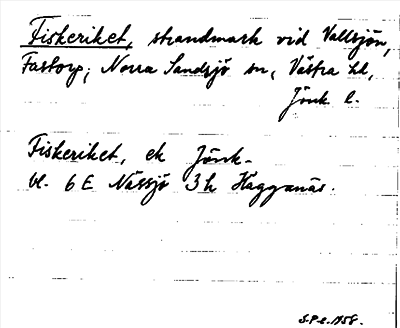 Fiskeriket, strandmark vid Vallsjön,
Fastorp, Norra Sandsjö sn, Västra hd,
Jönk l.
Fiskeriket, ek Jönk-
bl. 6 E Nässjö 3 h Hagganäs.
S.P-e. 1958.